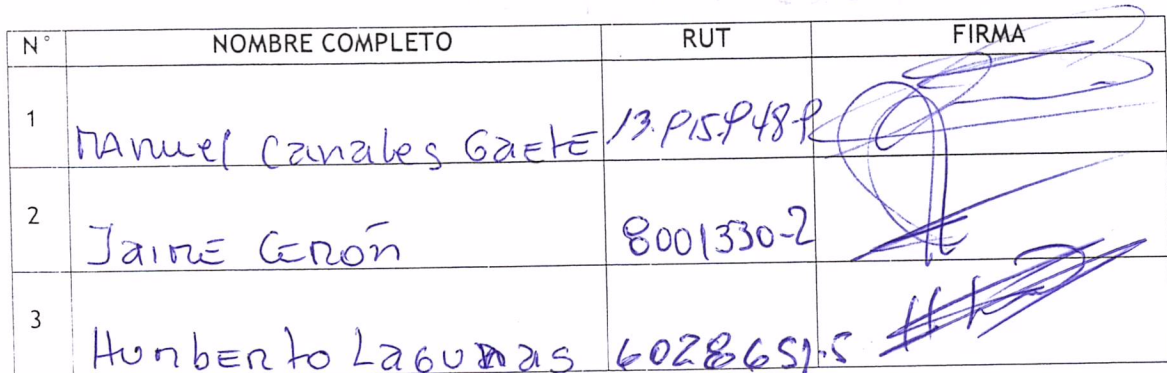 N° NOMBRE COMPLETO RUT FIRMA
1 MAnuel Canales GaetE
2 JaimE CERón 8001330-2
3 HumbERto Lagunas